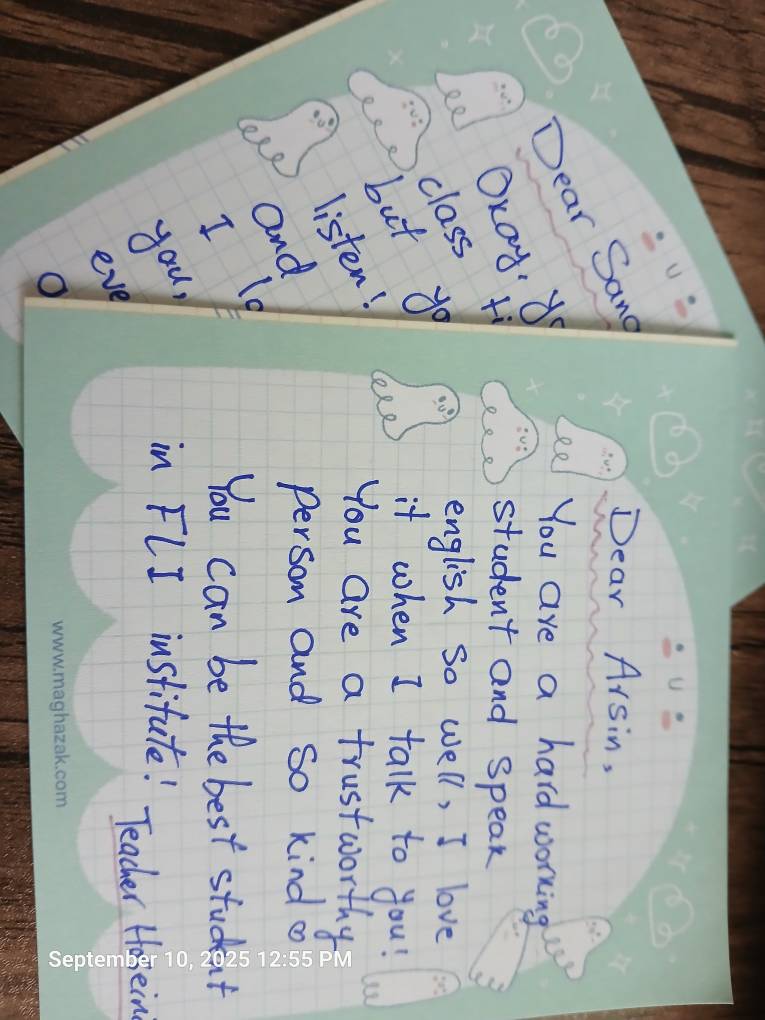 Dear Sana
Okay, yo
class ti
but yo
listen!
and
I lo
you,
eve
Dear Arsin,
You are a hard working
student and speak
english so well, I love
it when I talk to you!
You are a trustworthy
person and so kind
You can be the best student
in FLI institute!
Teacher Hoseini
www.maghazak.com
September 10, 2025 12:55 PM